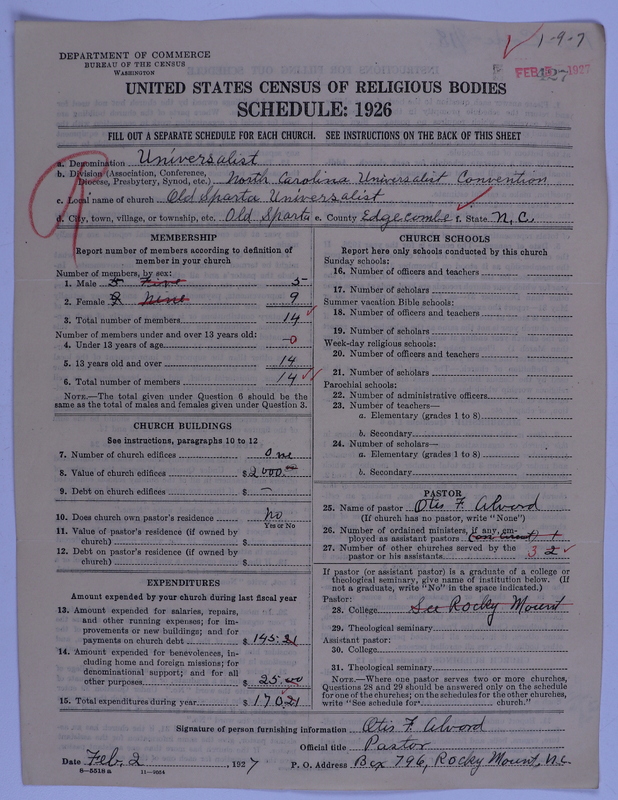 1-9-7
DEPARTMENT OF COMMERCE
BUREAU OF THE CENSUS
WASHINGTON
FEB 1927
UNITED STATES CENSUS OF RELIGIOUS BODIES
SCHEDULE: 1926
FILL OUT A SEPARATE SCHEDULE FOR EACH CHURCH. SEE INSTRUCTIONS ON THE BACK OF THIS SHEET
a. Denomination Universalist
b. Division (Association, Conference,
Diocese, Presbytery, Synod, etc.) North Carolina Universalist Convention
c. Local name of church Old Sparta Universalist
d. City, town, village, or township, etc. Old Sparta e. County Edgecombe f. State N.C.
MEMBERSHIP
Report number of members according to definition of
member in your church
Number of members, by sex:
1. Male 5 Five 5
2. Female 9 Nine 9
3. Total number of members 14
Number of members under and over 13 years old:
4. Under 13 years of age 0
5. 13 years old and over 14
6. Total number of members 14
NOTE.—The total given under Question 6 should be
same as the total of males and females given under Question 3.
CHURCH BUILDINGS
See instructions, paragraphs 10 to 12
7. Number of church edifices One
8. Value of church edifices $2000.00
9. Debt on church edifices $ —
10. Does church own pastor's residence No
Yes or No
11. Value of pastor's residence (if owned by
church) $
12. Debt on pastor's residence (if owned by
church) $
EXPENDITURES
Amount expended by your church during last fiscal year
13. Amount expended for salaries, repairs,
and other running expenses; for im-
provements or new buildings; and for
payments on church debt $ 145.21
14. Amount expended for benevolences, in-
cluding home and foreign missions; for
denominational support; and for all
other purposes $ 25.00
15. Total expenditures during year $ 170.21
CHURCH SCHOOLS
Report here only schools conducted by this church
Sunday schools:
16. Number of officers and teachers
17. Number of scholars
Summer vacation Bible schools:
18. Number of officers and teachers
19. Number of scholars
Week-day religious schools:
20. Number of officers and teachers
21. Number of scholars
Parochial schools:
22. Number of administrative officers
23. Number of teachers—
a. Elementary (grades 1 to 8)
b. Secondary
24. Number of scholars—
a. Elementary (grades 1 to 8)
b. Secondary
PASTOR
25. Name of pastor Otis F. Alvord
(If church has no pastor, write "None")
26. Number of ordained ministers, if any, em-
ployed as assistant pastors 1
27. Number of other churches served by the
pastor or his assistants 3 2
If pastor (or assistant pastor) is a graduate of a college or
theological seminary, give name of institution below. (If
not a graduate, write "No" in the space indicated.)
Pastor:
28. College See Rocky Mount
29. Theological seminary
Assistant pastor:
30. College
31. Theological seminary
NOTE.—Where one pastor serves two or more churches,
Questions 28 and 29 should be answered only on the schedule
for one of the churches; on the schedules for the other churches,
write "See schedule for church."
Signature of person furnishing information Otis F. Alvord
Official title Pastor
Date Feb. 2, 1927 P. O. Address Box 796, Rocky Mount, N.C.
8—5518 a 11—9064